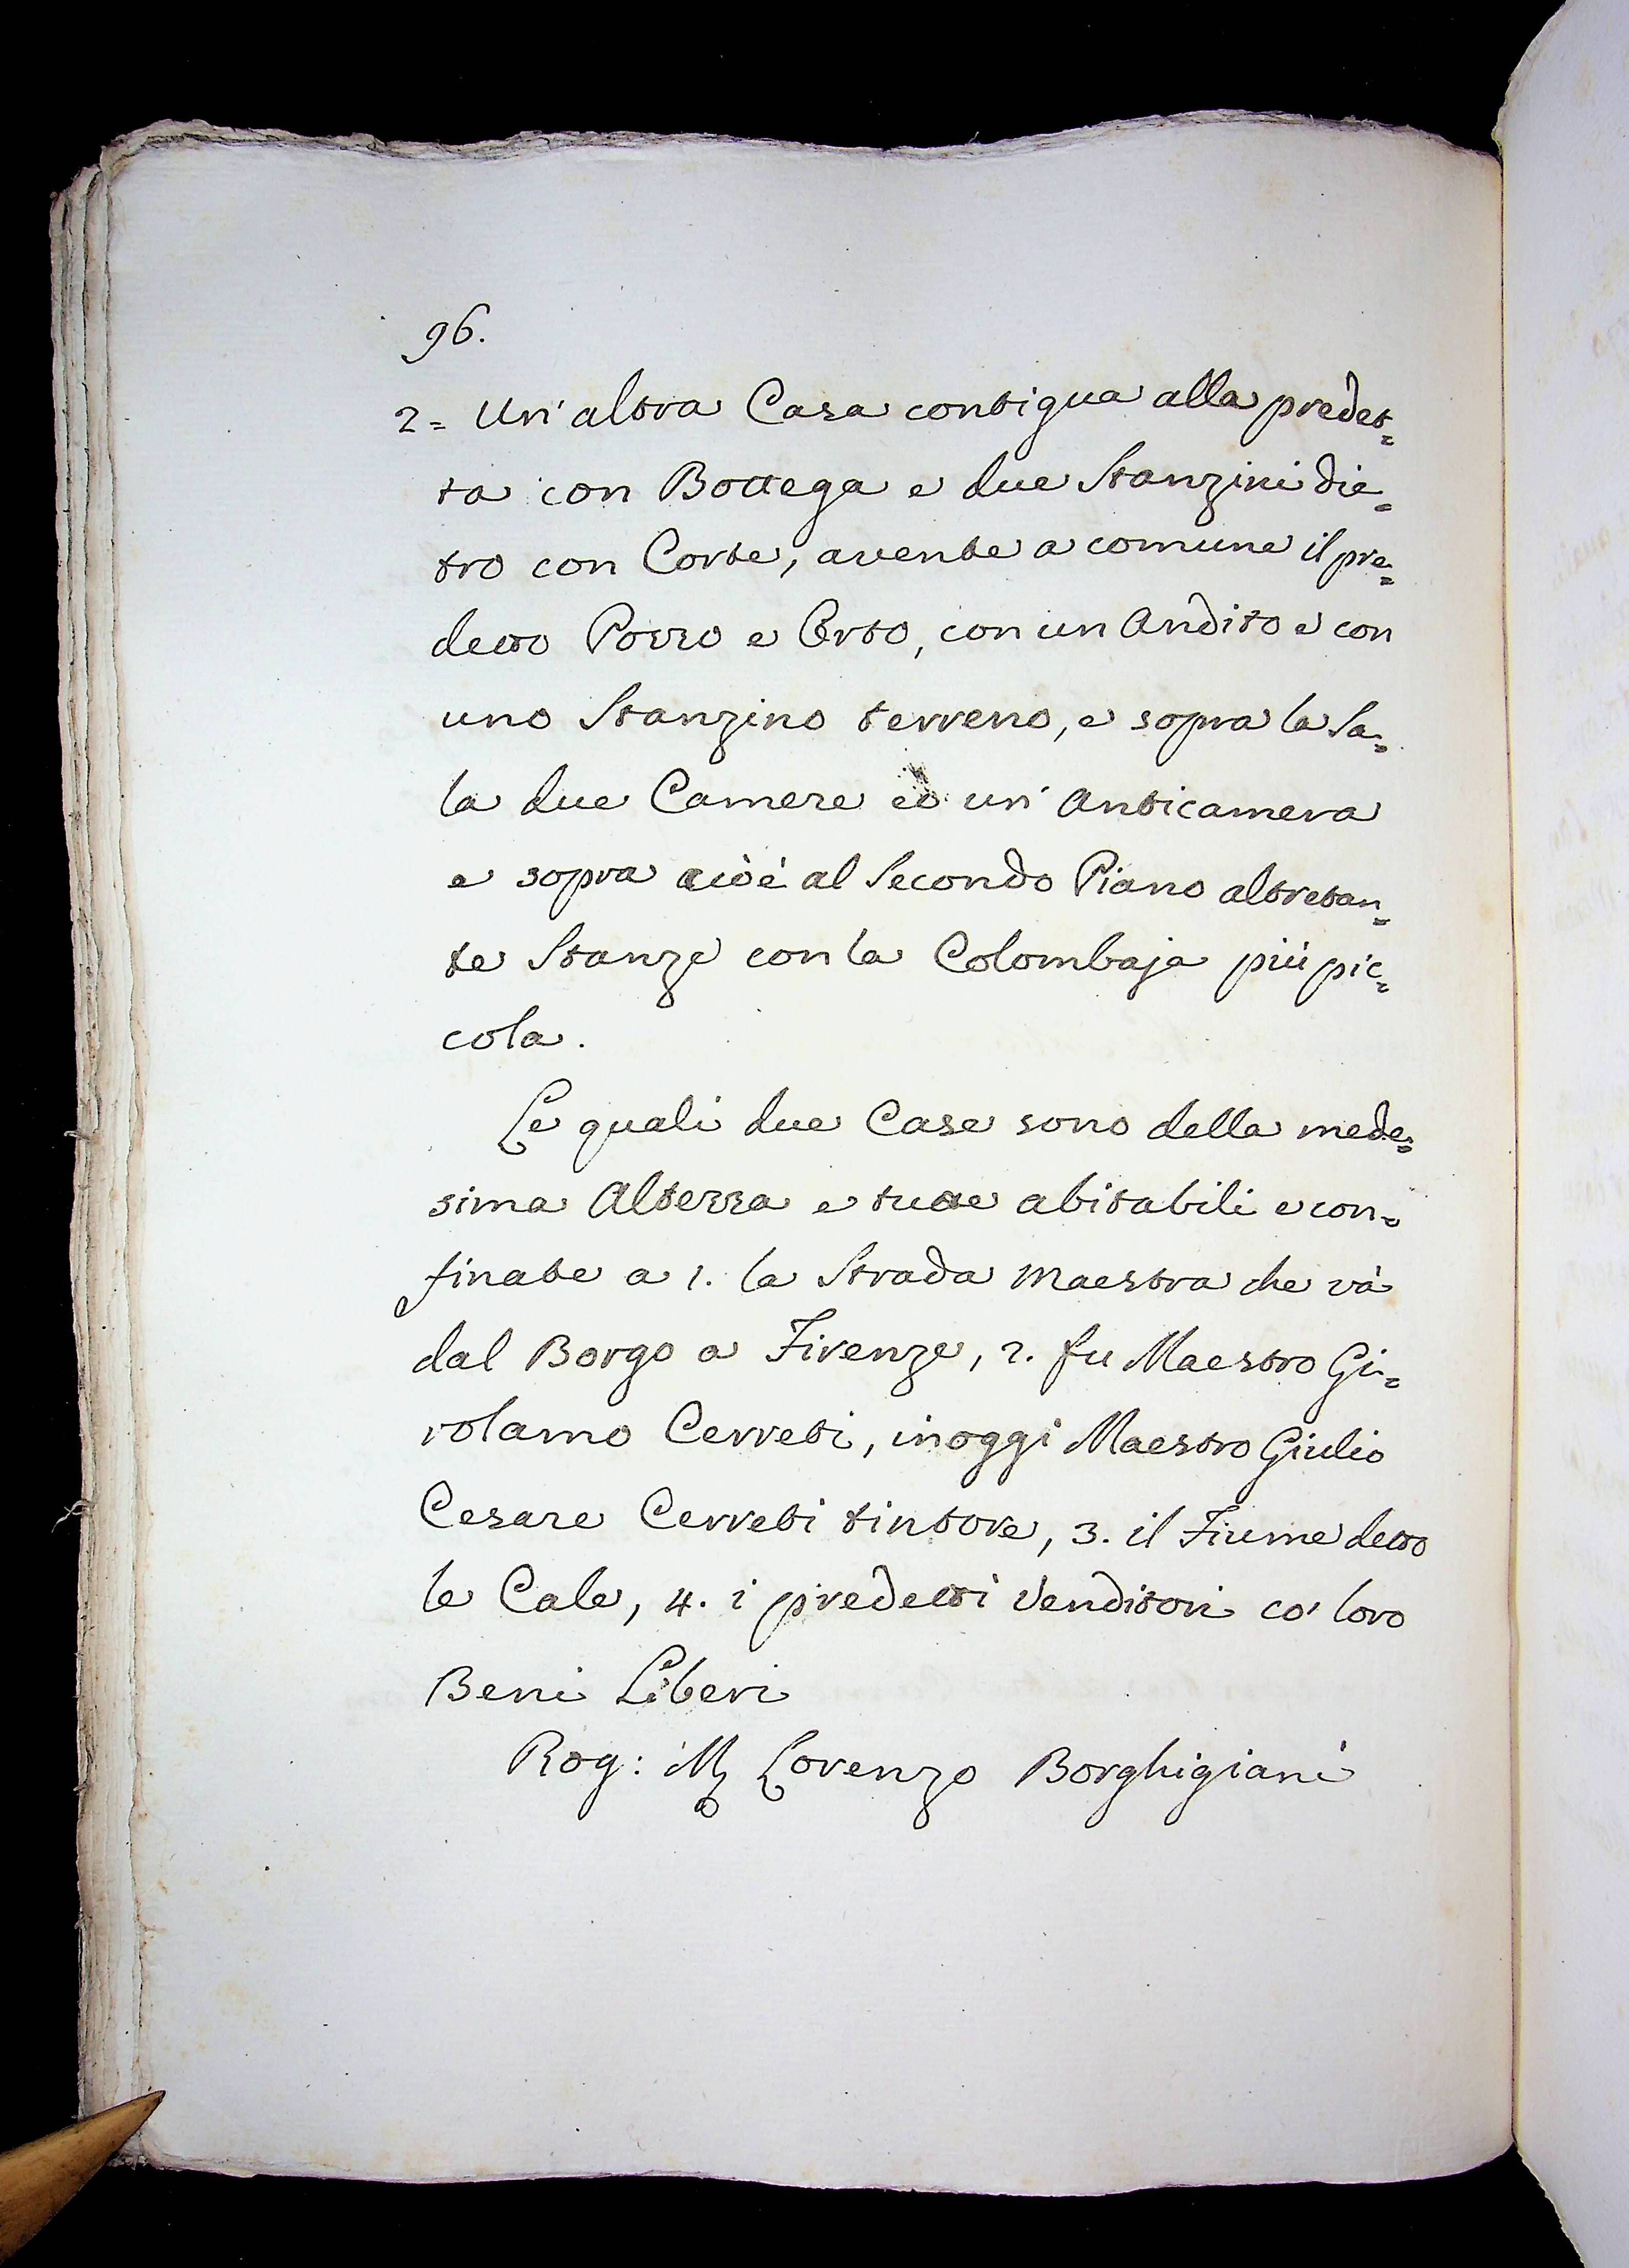 96.
2= Un'altra Casa contigua alla predet=
ta con Bottega e due Stanzini die=
tro con Corte, avente a comune il pre=
detto Pozzo e Orto, con un Andito e con
uno Stanzino terreno, e sopra la Sa=
la due Camere ed un' Anticamera
e sopra cioè al Secondo Piano altretan=
te Stanze con la Colombaja più pic=
cola.
Le quali due Case sono della mede=
sima Altezza e tutte abitabili e con=
finate a 1. la Strada Maestra che và
dal Borgo a Firenze, 2. fu Maestro Gi=
rolamo Cerreti, in oggi Maestro Giulio
Cesare Cerreti tintore, 3. il Fiume detto
le Cale, 4. i predetti Venditori co' loro
Beni Liberi
Rog: M Lorenzo Borghigiani